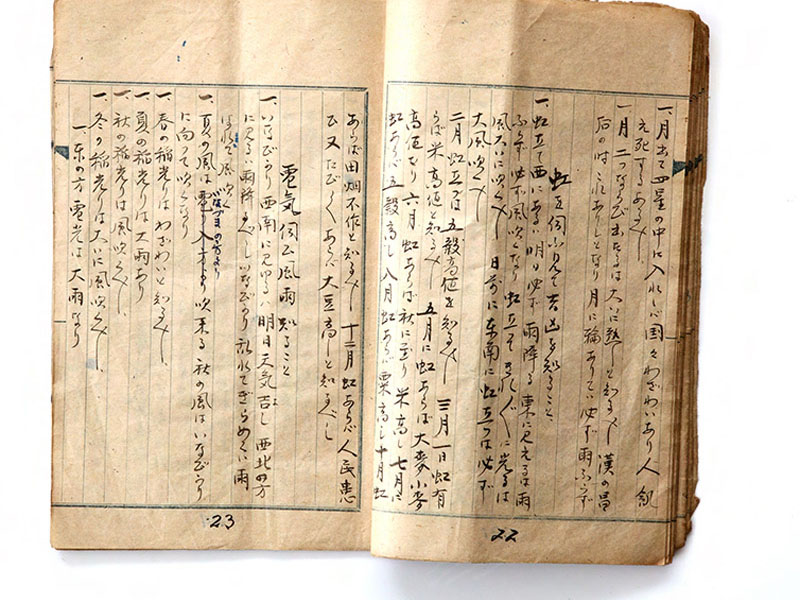 一、月出て四星の中に入れしハ国々わざわいあり人飢
え死するとあるべし
一月二つならび出たるは大いに熱しと知るべし 漢の昌
石の時これありしとなり 月に輪ありてハ必ず雨ふらず
虹を伺ふ見て吉凶を知ること、
一、虹立て西にあるハ明日必ず雨降る 東に見えるは雨
ふらず必ず風吹くなり 虹立てそれ〲に出るは
風大いに吹くべし 日前に東南に虹立つは必ず
大風吹くべし
二月虹立つは五穀高値を知るべし 三月一日虹有
らば米高値と知るべし 五月に虹あらば大麥小麥
高値なり 六月虹あらば秋に至り米高し 七月に
虹あらバ五穀高し 八月虹あらバ粟高し十月虹
あらば田畑不作と知るべし 十二月虹あらバ人民患
ひ又たび〲あらバ大豆高しと知るべし
電気伺ひ風雨知ること
一、いなびかり西南に見ゆるハ明日天気吉し 西北の方
に見るハ雨降るべし いなびかり乱れてぎらめくハ雨
はれて風吹く
一、夏の風は電り入方より吹来る 秋の風はいなびかり
いなづまのかたより
に向って吹くなり
一、春の稲光りはわざわいと知るべし
一、夏の稲光りは大雨あり
一、秋の稲光りは風吹くべし、
一、冬の稲光りは大いに風吹くべし、
一 東の方電光は大雨なり
22
23